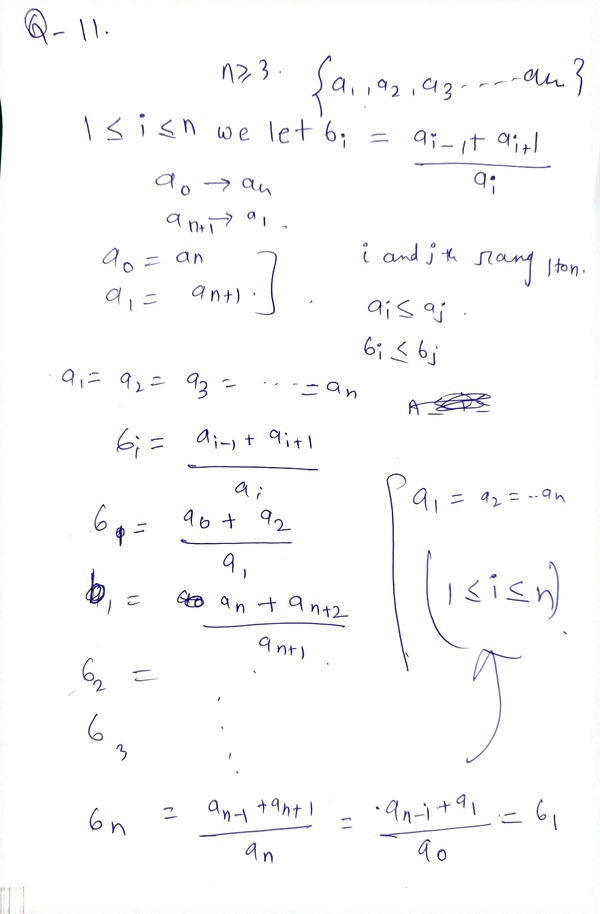 Q-11.
n≥3. {a₁, a₂, a₃ ----- aₙ}
1 ≤ i ≤ n we let bᵢ = (aᵢ₋₁ + aᵢ₊₁)/aᵢ
a₀ → aₙ
aₙ₊₁ → a₁.
a₀ = aₙ
a₁ = aₙ₊₁.
i and j
aᵢ ≤ aⱼ.
bᵢ ≤ bⱼ
a₁ = a₂ = a₃ = .... = aₙ
bᵢ = (aᵢ₋₁ + aᵢ₊₁)/aᵢ
b₁ = (a₀ + a₂)/a₁
b₁ = (aₙ + aₙ₊₂)/aₙ₊₁
b₂ =
b₃
a₁ = a₂ = ..aₙ
(1 ≤ i ≤ n)
bₙ = (aₙ₋₁ + aₙ₊₁)/aₙ = (aₙ₋₁ + a₁)/a₀ = b₁